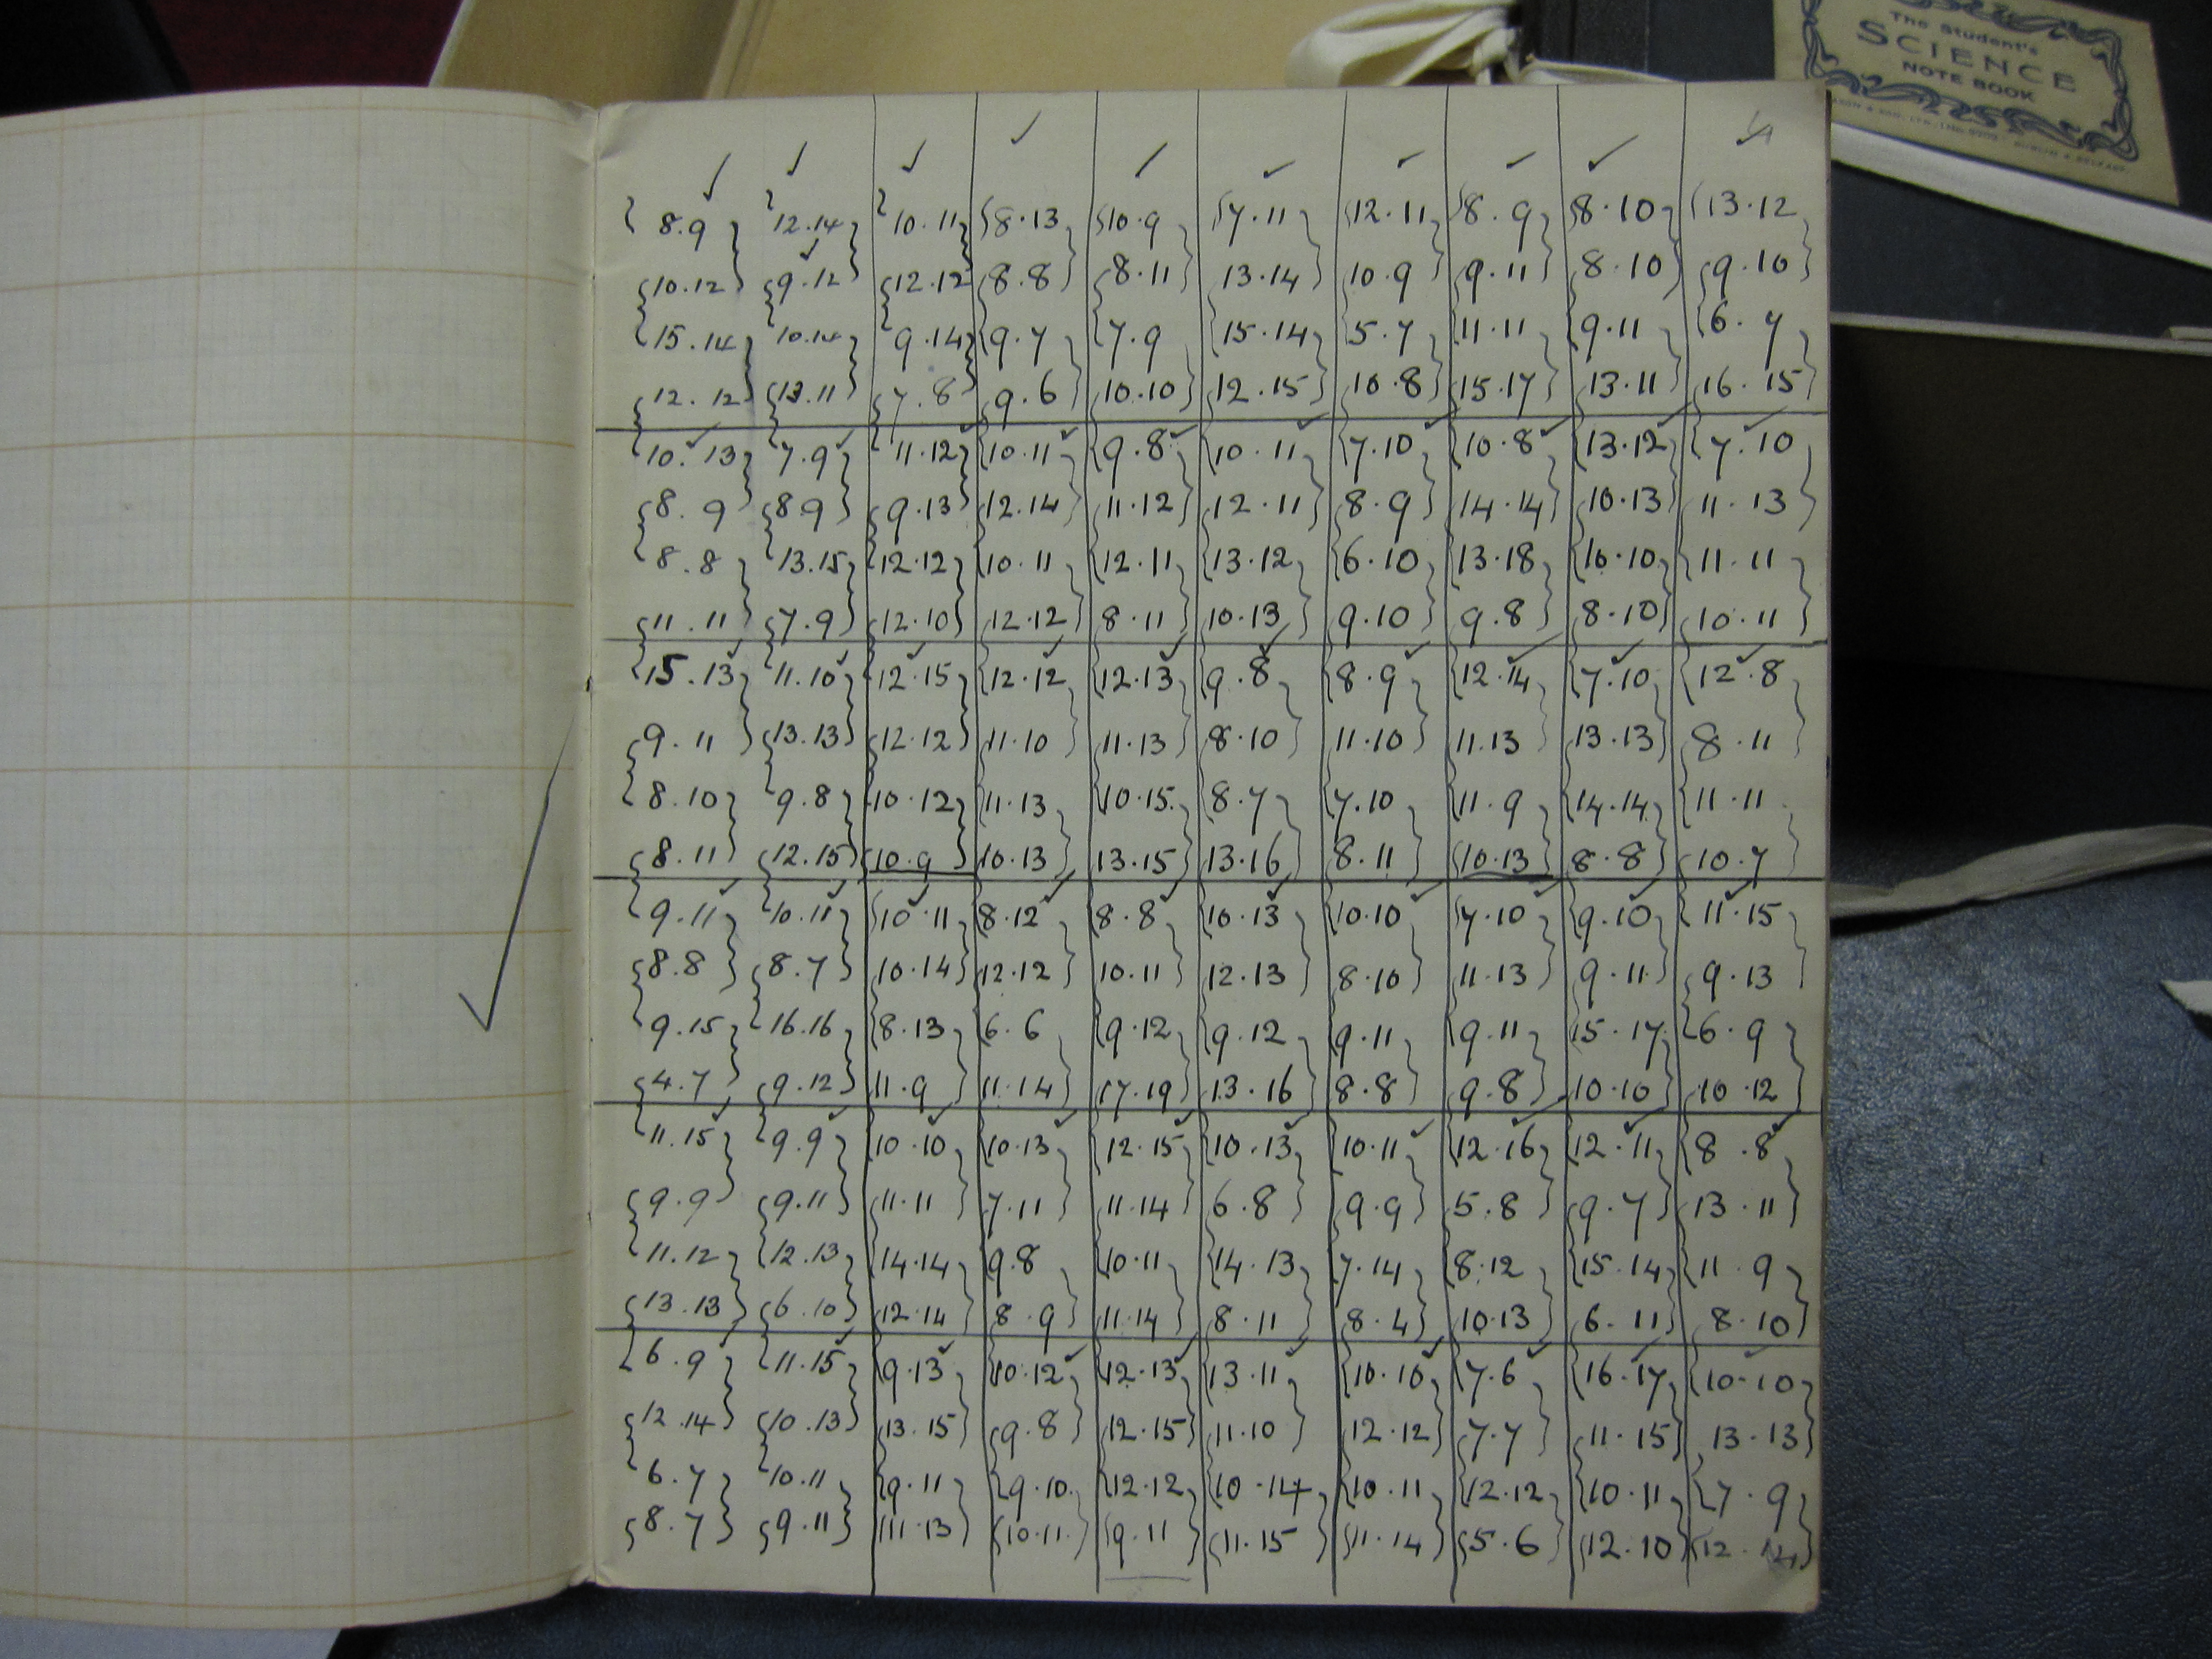 The Student's
SCIENCE
NOTE BOOK
8.9 12.14 10.11 8.13 10.9 7.11 12.11 8.9 8.10 13.12
10.12 9.12 12.12 8.8 8.11 13.14 10.9 9.11 8.10 9.10
15.14 10.14 9.14 9.7 7.9 15.14 5.7 11.11 9.11 6.7
12.12 13.11 7.8 9.6 10.10 12.15 10.8 15.17 13.11 16.15
10.13 7.9 11.12 10.11 9.8 10.11 7.10 10.8 13.12 7.10
8.9 8.9 9.13 12.14 11.12 12.11 8.9 14.14 10.13 11.13
8.8 13.15 12.12 10.11 12.11 13.12 6.10 13.18 10.10 11.11
11.11 7.9 12.10 12.12 8.11 10.13 9.10 9.8 8.10 10.11
15.13 11.10 12.15 12.12 12.13 9.8 8.9 12.14 7.10 12.8
9.11 13.13 12.12 11.10 11.13 8.10 11.10 11.13 13.13 8.11
8.10 9.8 10.12 11.13 10.15 8.7 7.10 11.9 14.14 11.11
8.11 12.15 10.9 10.13 13.15 13.16 8.11 10.13 8.8 10.7
9.11 10.11 10.11 8.12 8.8 10.13 10.10 7.10 9.10 11.15
8.8 8.7 10.14 12.12 10.11 12.13 8.10 11.13 9.11 9.13
9.15 16.16 8.13 6.6 9.12 9.12 9.11 9.11 15.17 6.9
4.7 9.12 11.9 11.14 17.19 13.16 8.8 9.8 10.10 10.12
11.15 9.9 10.10 10.13 12.15 10.13 10.11 12.16 12.11 8.8
9.9 9.11 11.11 7.11 11.14 6.8 9.9 5.8 9.7 13.11
11.12 12.13 14.14 9.8 10.11 14.13 7.14 8.12 15.14 11.9
13.13 6.10 12.14 8.9 11.14 8.11 8.4 10.13 6.11 8.10
6.9 11.15 9.13 10.12 12.13 13.11 10.10 7.6 16.17 10.10
12.14 10.13 13.15 9.8 12.15 11.10 12.12 7.7 11.15 13.13
6.7 10.11 9.11 9.10 12.12 10.14 10.11 12.12 10.11 7.9
8.7 9.11 11.13 10.11 9.11 11.15 11.14 5.6 12.10 12.14